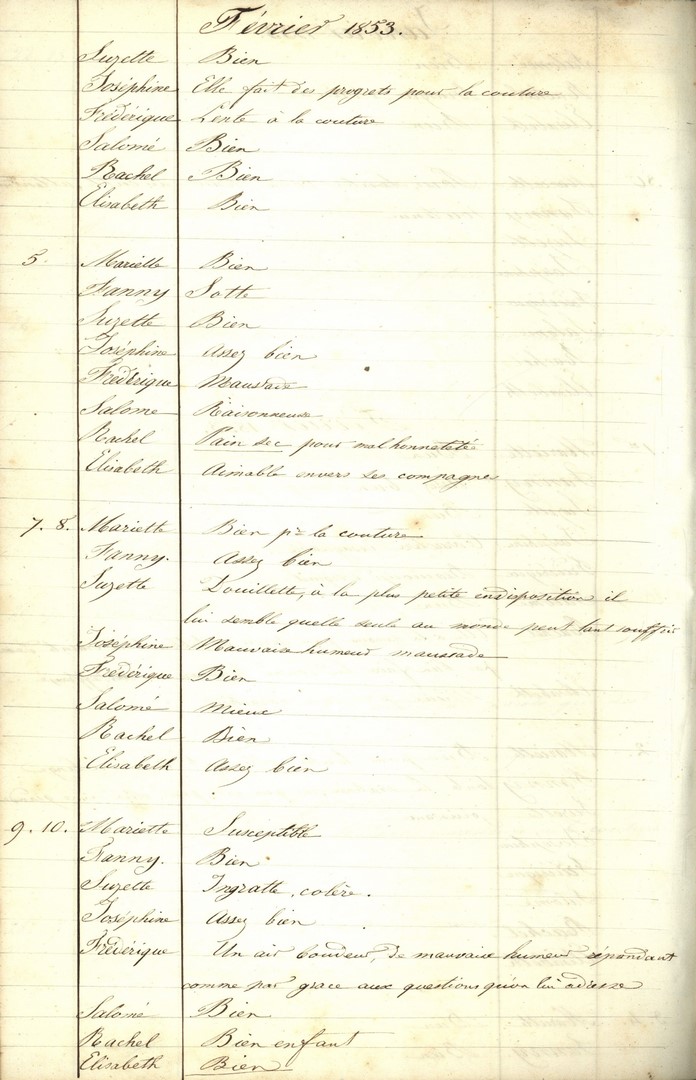 Février 1853.
Suzette Bien
Joséphine Elle fait des progrets pour la couture
Frédérique Lente à la couture
Salomé Bien
Rachel Bien
Elisabeth Bien
5. Mariette Bien
Fanny Sotte
Suzette Bien
Joséphine Assez bien
Frédérique Maussade
Salomé Raisonneuse
Rachel Pain sec pour malhonneteté
Elisabeth Aimable envers ses compagnes
7. 8. Mariette Bien pr la couture
Fanny. Assez bien
Suzette Douillette, à la plus petite indisposition il
lui semble quelle seule au monde peut tant souffrir
Joséphine Mauvaise humeur maussade
Frédérique Bien
Salomé Mieux
Rachel Bien
Elisabeth Assez bien
9. 10. Mariette Susceptible
Fanny. Bien
Suzette Ingratte, colère.
Joséphine Assez bien
Frédérique Un air boudeur, de mauvaise humeur répondant
comme par grace aux questions qu'on lui adresse
Salomé Bien
Rachel Bien enfant
Elisabeth Bien